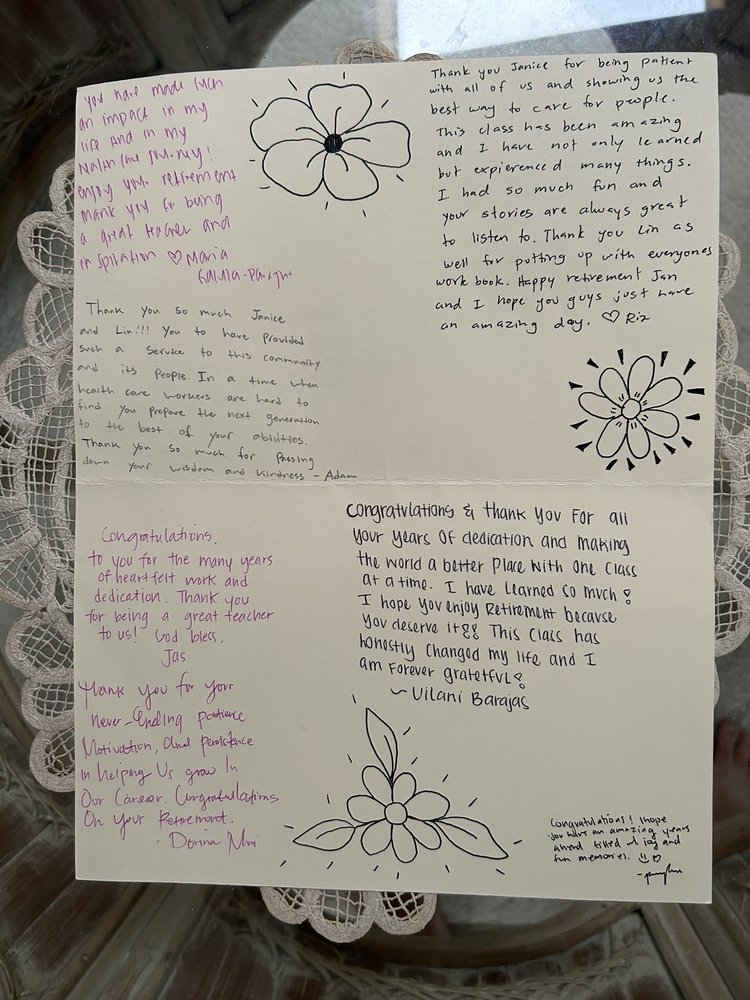 you have made such
an impact in my
life and in my
Health care journey!
enjoy your retirement
thank you for being
a great teacher and
inspiration ♡ Maria
Thank you Janice for being patient
with all of us and showing us the
best way to care for people.
This class has been amazing
and I have not only learned
but expierenced many things.
I had so much fun and
your stories are always great
to listen to. Thank you Lin as
well for putting up with everyones
work book. Happy retirement Jan
and I hope you guys just have
an amazing day. ♡ Riz
Thank you so much Janice
and Lin!!! You to have provided
such a service to this community
and its people. In a time when
health care workers are hard to
find you prepare the next generation
to the best of your abilities.
Thank you so much for passing
down your wisdom and kindness - Adam
Congratulations & thank you for all
your years of dedication and making
the world a better place with one class
at a time. I have learned so much!
I hope you enjoy Retirement because
you deserve it!! This class has
honestly changed my life and I
am forever grateful!
~ Vilani Barajas
Congratulations,
to you for the many years
of heartfelt work and
dedication. Thank you
for being a great teacher
to us! God bless.
Jas
Thank you for your
never-Ending patience
Motivation, and persistence
in helping us grow In
Our Career. Congratulations
On your Retirement.
- Dorina
Congratulations! I hope
you have an amazing years
ahead filled w joy and
fun memories. ☺ ♡